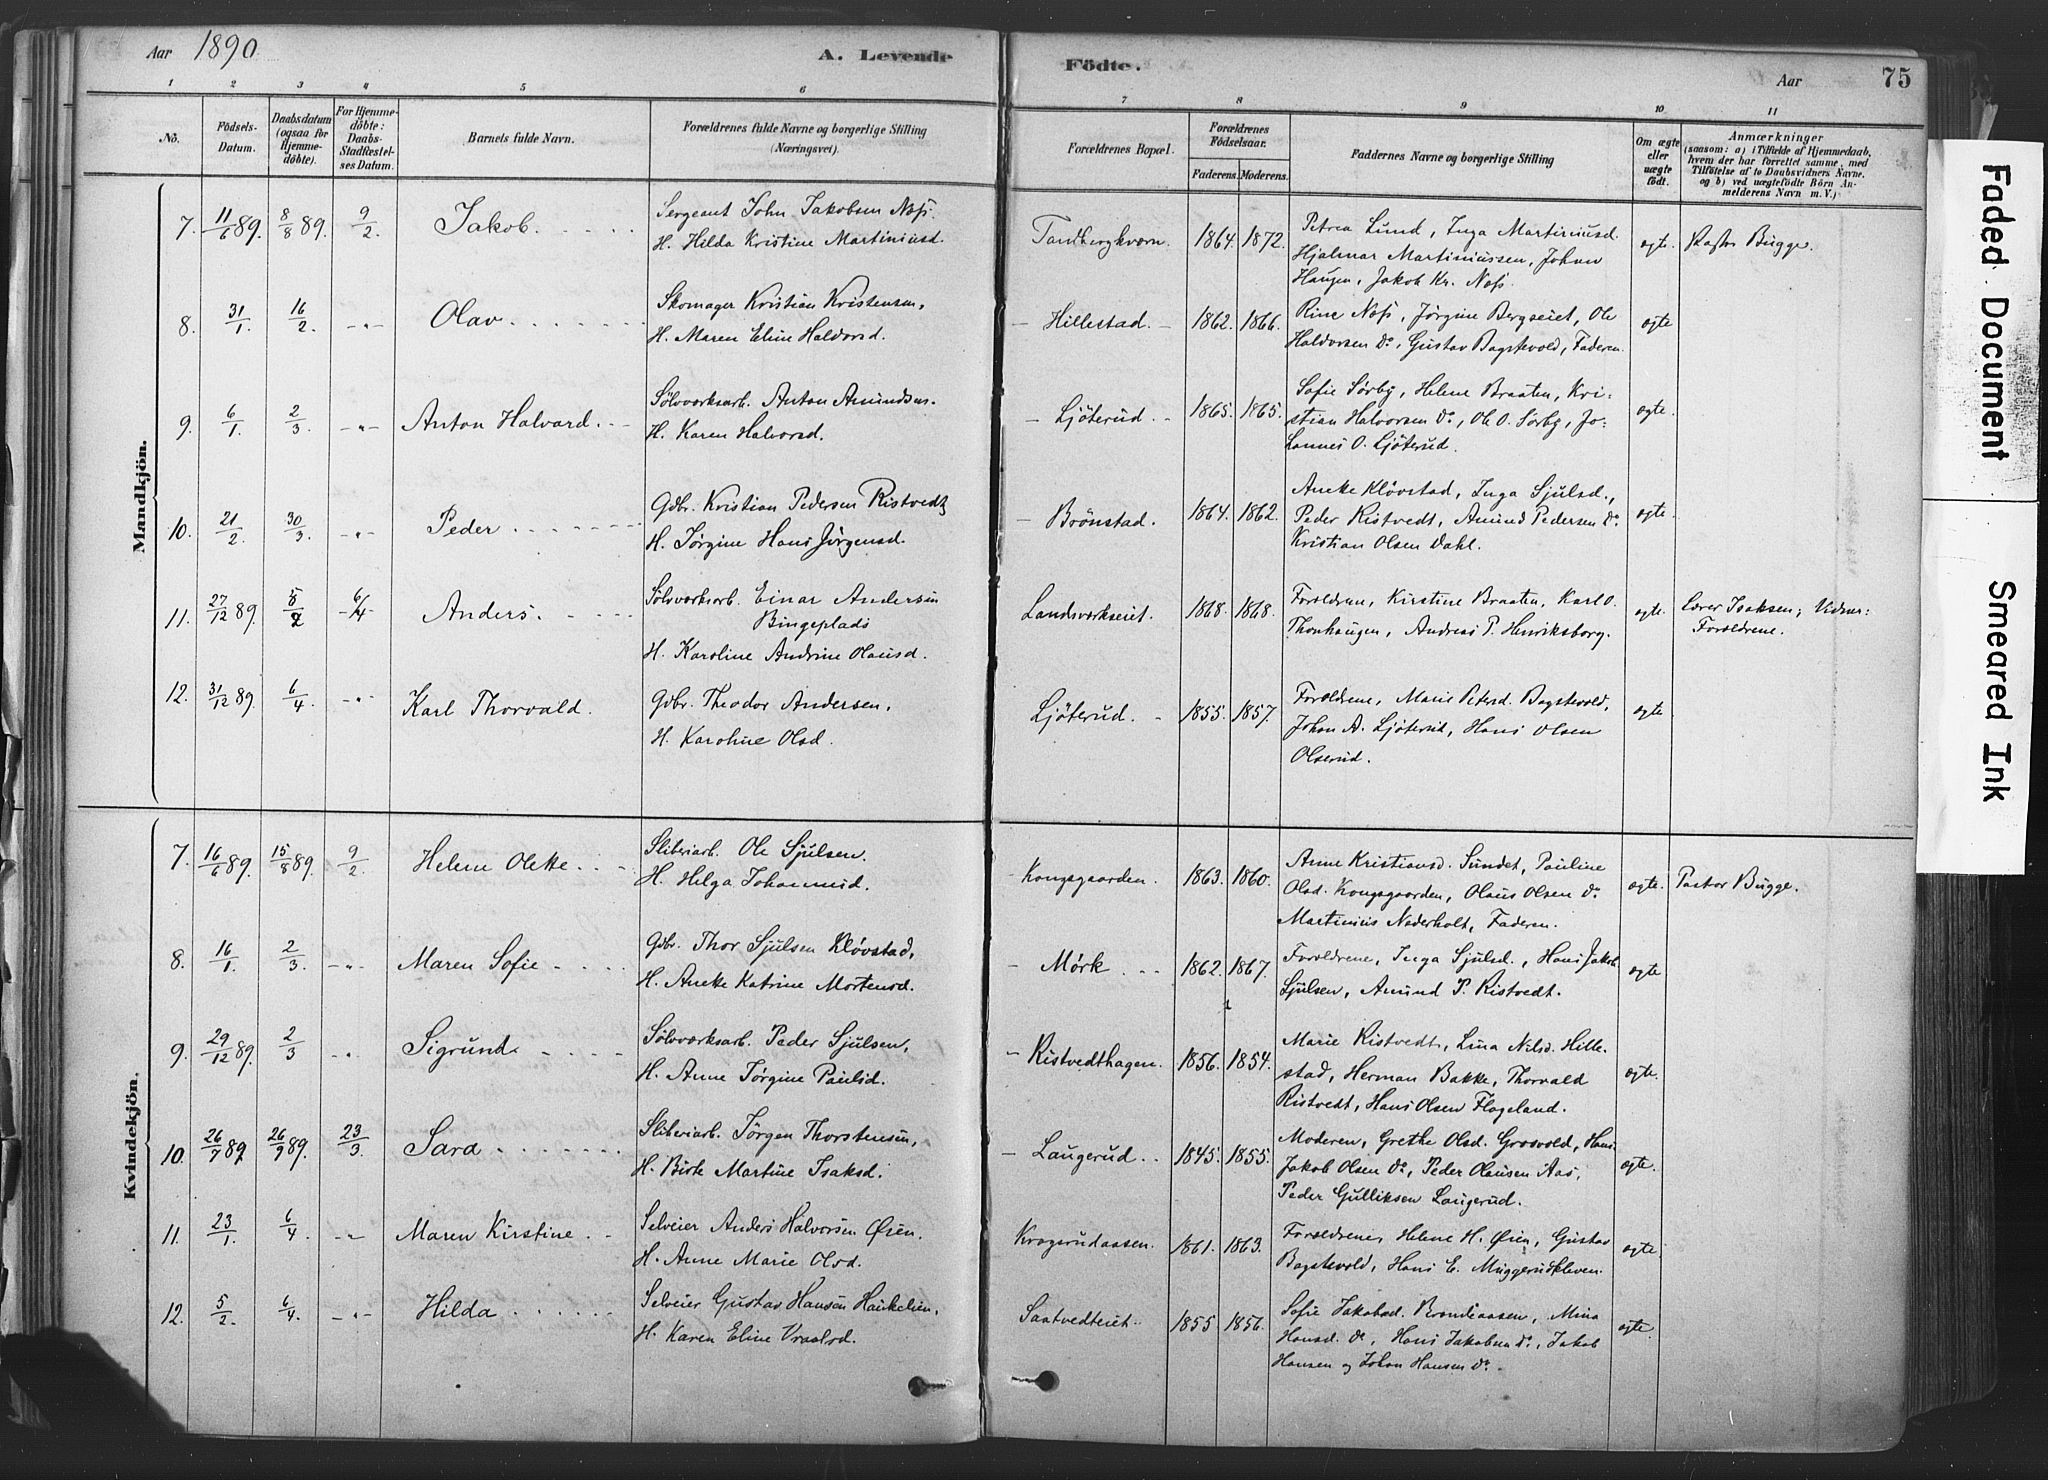 Aar 1890
A. Levende
Födte.
Aar
75
1 2 3 4 5 6 7 8 9 10 11
No.
Födsels-Datum.
Daabsdatum (ogsaa for Hjemmedöbte).
For Hjemmedöbte: Daabs-Stadfæstelses Datum.
Barnets fulde Navn.
Forældrenes fulde Navne og borgerlige Stilling (Næringsvei).
Forældrenes Bopæl.
Forældrenes Födselsaar.
Faderens. Moderens.
Faddernes Navne og borgerlige Stilling
Om ægte eller uægte födt.
Anmærkninger (saasom: a) i Tilfælde af Hjemmedaab, hvem der har forrettet samme, med Tilföielse af to Daabsvidners Navne, og b) ved uægtefödte Börn Anmelderens Navn m. V.)
Mandkjön.
7. 11/6 89. 8/8 89. 9/2 Jakob. Sergeant John Jakobsen Næss.
H. Hilda Kristine Martiniusd. Tandbergkværn. 1864. 1872. Petrea Lund, Inga Martiniusd.
Hjalmar Martiniussen, Johan
Haugen, Jakob Kr. Næss. ægte. Pastor Bugge.
8. 31/1. 16/2. -"- Olav. Skomager Kristian Kristensen,
H. Maren Eline Haldorsd. Hillestad. 1862. 1866. Rine Næss, Jørgine Bergseiet, Ole
Haldorsen Do, Gustav Bagstevold, Faderen. ægte
9. 6/1. 2/3. -"- Anton Halvard. Sølvværksarb. Anton Amundsen.
H. Karen Halvorsd. Ljöterud. 1865. 1865. Sofie Sørby, Helene Braaten, Kri-
stian Halvorsen Do, Ole O. Sørby, Jo-
hannes O. Ljöterud. ægte.
10. 21/2. 30/3. -"- Peder Gdbr. Kristian Pedersen Ristvedt,
H. Jørgine Hans Jørgensd. Brönstad. 1864. 1862. Aneke Kløvstad, Inga Sjulsd.,
Peder Ristvedt, Amund Pedersen Do
Kristian Olsen Dahl. ægte.
11. 27/12 89. 6/4 Anders. Sølvværksarb. Einar Andersen
Bingeplads
H. Karoline Andrine Olausd. Landsverkseiet. 1868. 1868. Forældrene, Kirstine Braaten, Karl O.
Thonhaugen, Andreas P. Henriksborg. ægte. Lærer Isaksen; Vidner:
Forældrene.
12. 31/12 89. 6/4. -"- Karl Thorvald. Gdbr. Theodor Andersen,
H. Karoline Olsd. Ljöterud. 1855. 1857. Forældrene, Marie Petersd. Bagstevold,
Johan A. Ljöterud, Hans Olsen
Olserud. ægte
Kvindekjön.
7. 16/6 89. 15/8 89. 9/2 Helene Olette. Sliberiarb. Ole Sjulsen.
H. Helga Johannesd. Kongsgaarden. 1863. 1860. Anne Kristiansd. Sundet, Pauline
Olsd. Kongsgaarden, Olaus Olsen Do
Martinius Nederholt, Faderen. ægte. Pastor Bugge.
8. 16/1. 2/3. -"- Maren Sofie Gdbr. Thor Sjulsen Kløvstad,
H. Anette Katrine Mortensd. Mörk. 1862. 1867. Forældrene, Inga Sjulsd., Hans Jakob
Sjulsen, Amund P. Ristvedt. ægte
9. 29/12 89. 2/3 -"- Sigrund. Sølvværksarb. Peder Sjulsen,
H. Anne Jørgine Paulsd. Ristvedthagen. 1856. 1854. Marie Ristvedt, Lina Nilsd. Hille-
stad, Herman Bakke, Thorvald
Ristvedt, Hans Olsen Flageland. ægte.
10. 26/7 89 26/9 89. 23/3. Sara Sliberiarb. Jörgen Thorstensen,
H. Birte Martine Isaksd. Laugerud. 1845. 1855. Moderen, Grethe Olsd. Grosvold, Hans
Jakob Olsen Do, Peder Olausen Aas,
Peder Gulliksen Laugerud. ægte.
11. 23/1. 6/4. -"- Maren Kirstine. Selveier Anders Halvorsen Øien.
H. Anne Marie Olsd. Kragerudaasen. 1861. 1863. Forældrene, Helene H. Øien, Gustav
Bagstevold, Hans E. Muggerudkleven. ægte
12. 5/2. 6/4. -"- Hilda Selveier Gustav Hansen Haukelien,
H. Karen Eline Vraalsd. Saatvedteiet. 1855 1856. Sofie Jakobsd. Brændeaasen, Mina
Hansd. Do, Hans Jakobsen Do, Jakob
Hansen og Johan Hansen Do. ægte.
Faded Document
Smeared Ink